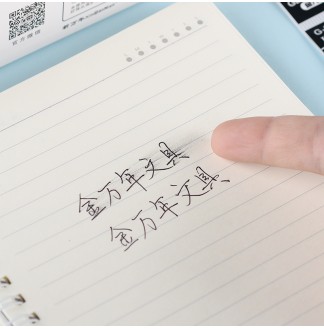 金万年文具
金万年文具